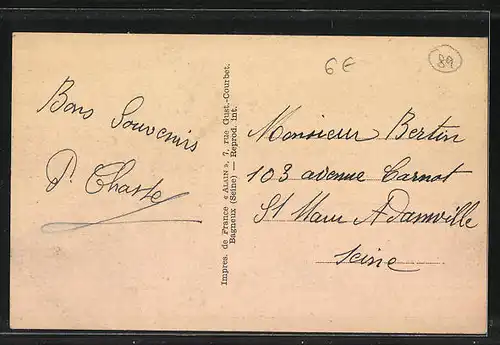 6€
89
Bons Souvenirs
P. Chasse
Impres. de France « ALAIN », 7, rue Gust.-Courbet.
Bagneux (Seine) — Reprod. int.
Monsieur Bertin
103 avenue Carnot
St Maur Adamville
Seine